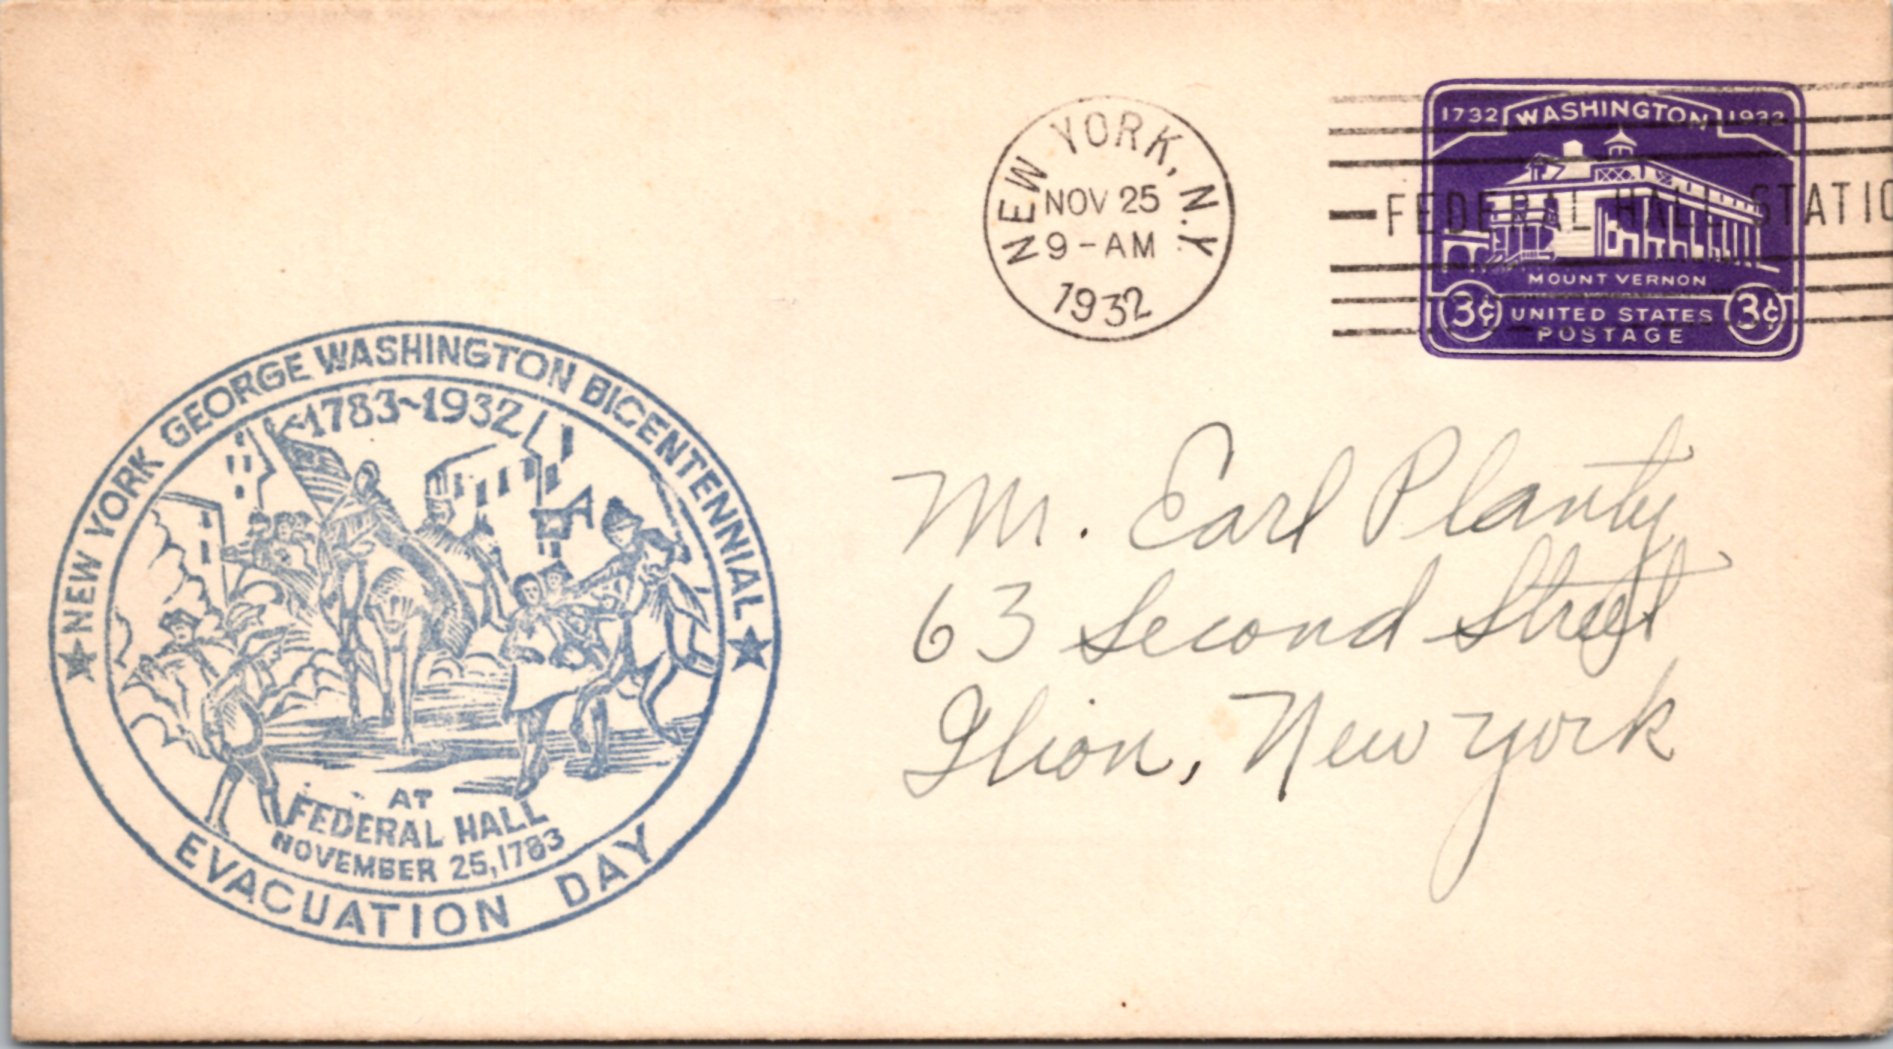 NEW YORK, N.Y.
NOV 25
9-AM
1932
FEDERAL HALL STATIO
1732 WASHINGTON 1932
MOUNT VERNON
3¢ UNITED STATES 3¢
POSTAGE
NEW YORK GEORGE WASHINGTON BICENTENNIAL
1783~1932
AT
FEDERAL HALL
NOVEMBER 25, 1783
EVACUATION DAY
Mr. Earl Planty
63 Second Street
Ilion, New York